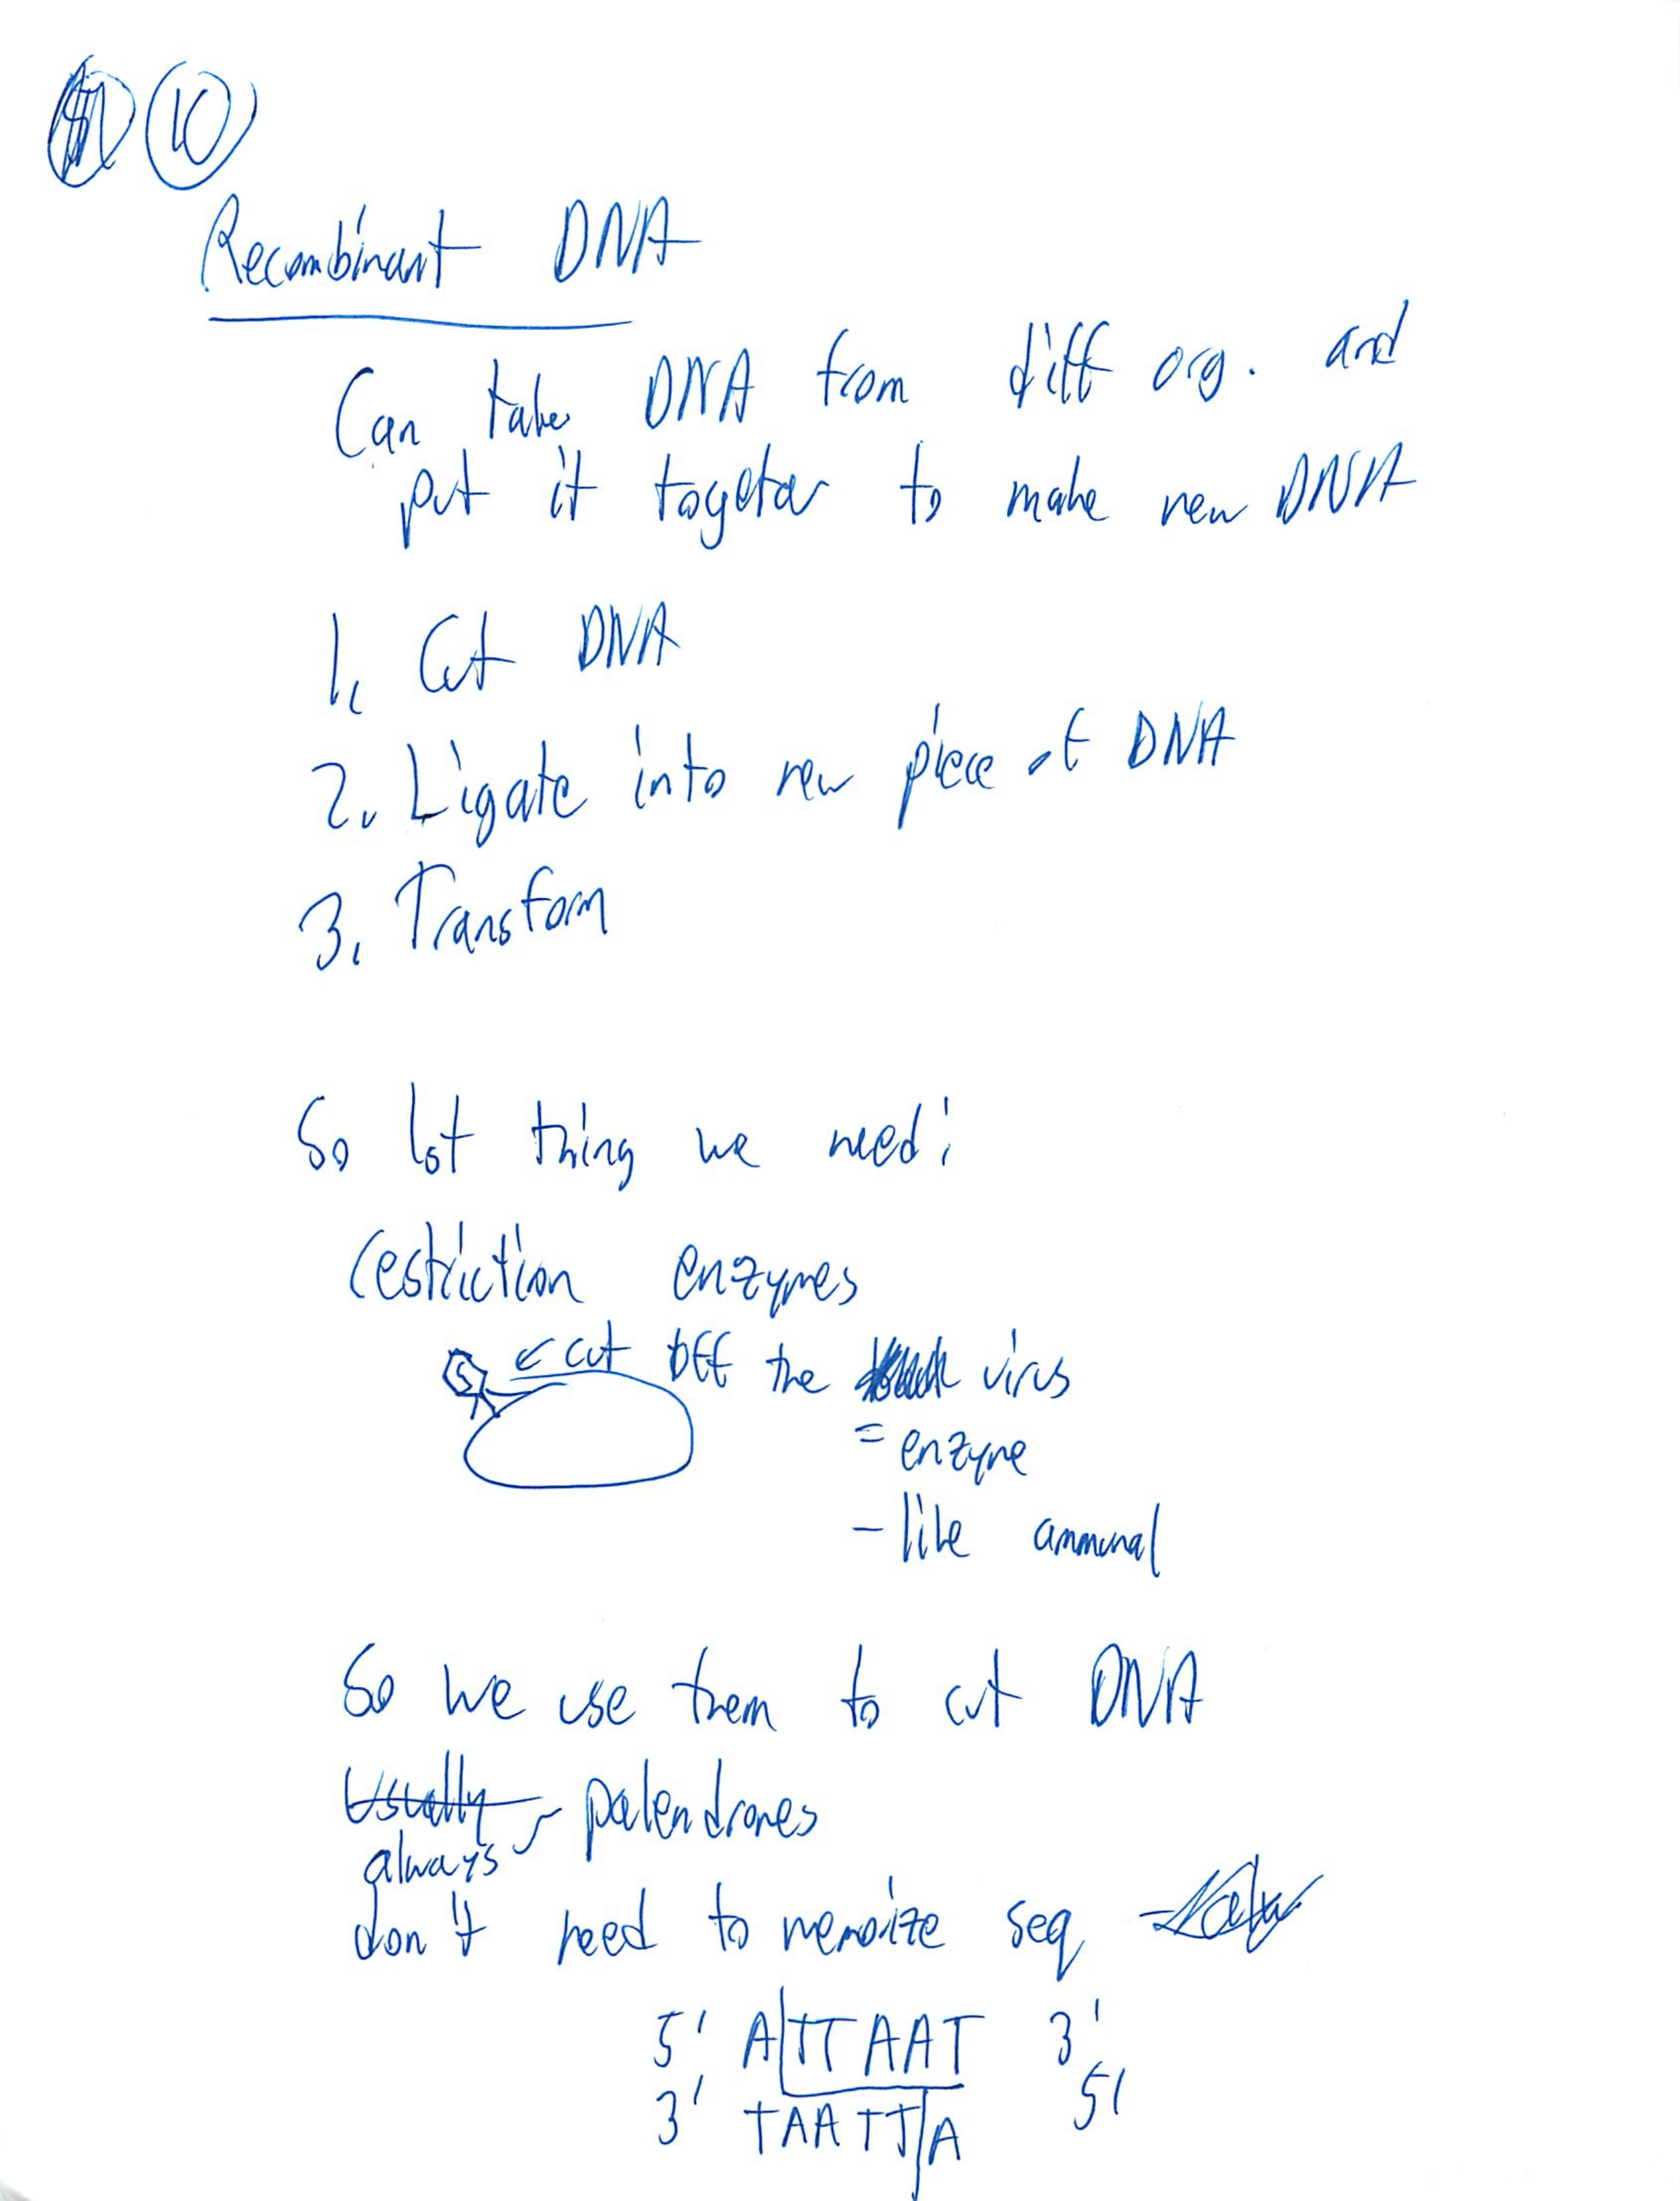 10
Recombinant DNA
Can take DNA from diff org. and
put it together to make new DNA
1. Cut DNA
2. Ligate into new piece of DNA
3. Transform
So 1st thing we need:
restriction enzymes
← cut off the virus
= enzyme
- like
So we use them to cut DNA
Usually - palendromes
always
don't need to memorize seq
5' A|TTAAT 3'
3' TAATT|A 5'